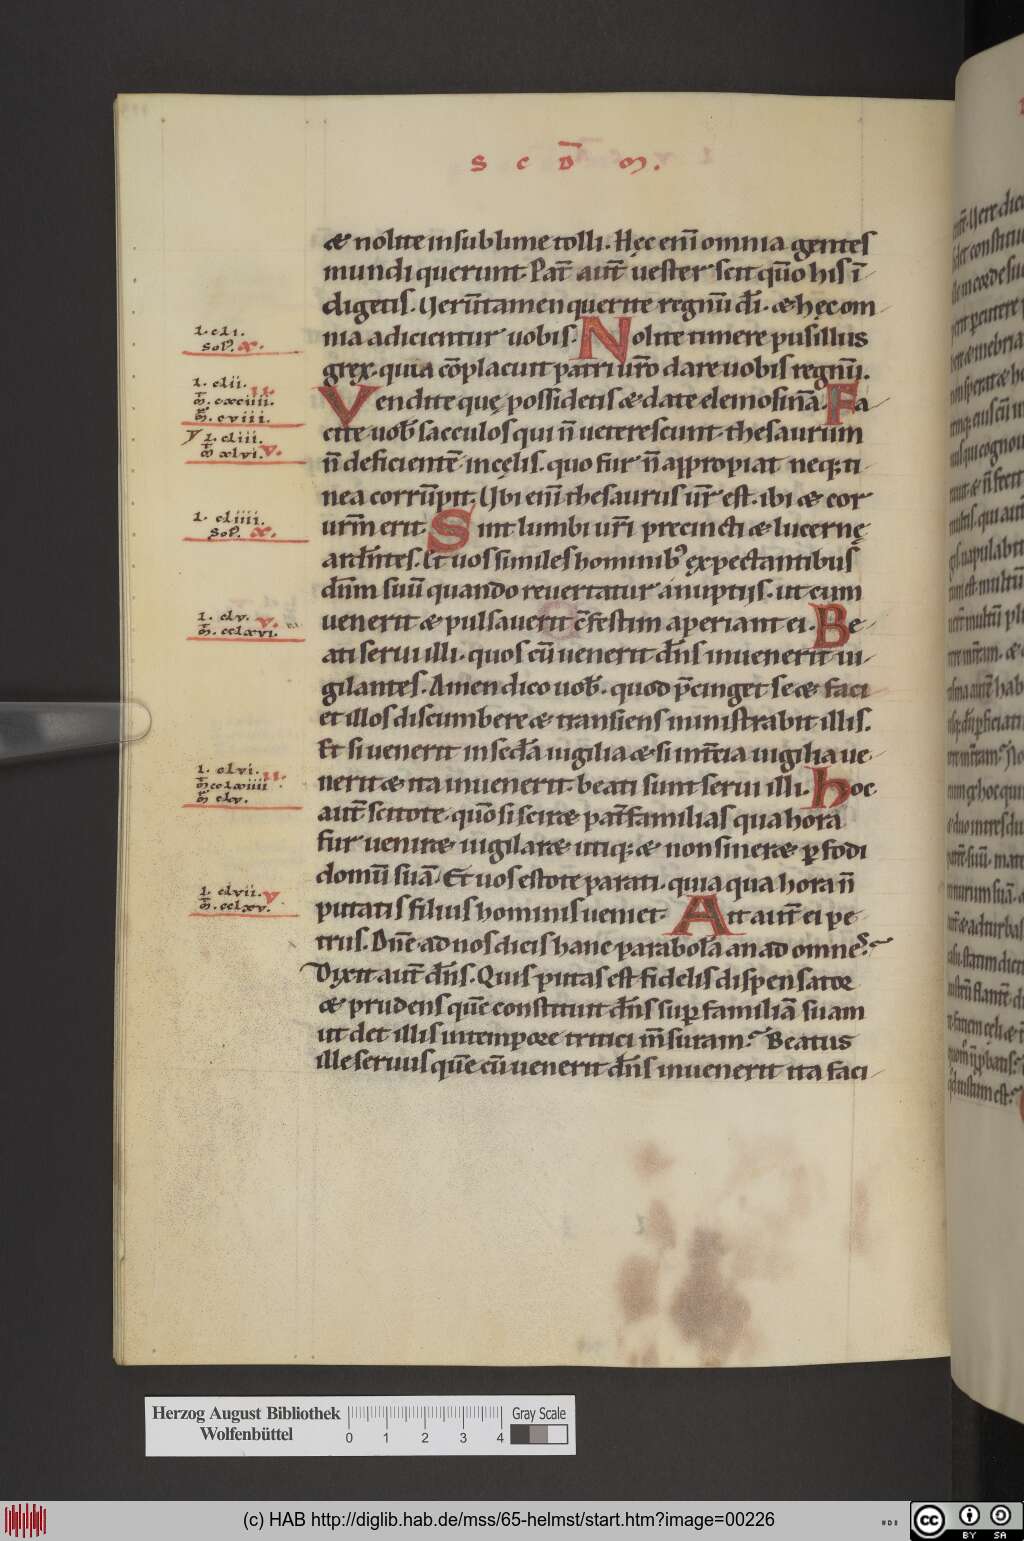 S C D̅ M.
& nolite in sublime tolli. Hęc eni̅ omnia gentes
mundi querunt. Pat̅ aut̅ uester scit qm̅o his i̅
digetis. Ueru̅tamen querite regnu̅ d̅i. & hęc om
nia adicientur uobis. Nolite timere pusillus
grex. quia co̅placuit patri ur̅o dare uobis regnu̅.
Vendite quę possidetis & date elemosina̅. Fa
cite uob̅ sacculos qui n̅ ueterescunt. thesaurum
n̅ deficiente̅ in cęlis. quo fur n̅ appropiat neq; ti
nea corru̅pit. Ubi eni̅ thesaurus ur̅ est. ibi & cor
urm̅ erit. Sint lumbi ur̅i precincti & lucernę
ard̅ntes. Et uos similes hominib; expectantibus
dn̅m suu̅ quando reuertatur a nuptijs. ut cum
uenerit & pulsauerit c̅festim aperiant ei. Be
ati serui illi. quos cu̅ uenerit dn̅s inuenerit ui
gilantes. Amen dico uob̅. quod p̅cinget se & faci
et illos discumbere & transiens ministrabit illis.
Et si uenerit in sed̅a uigilia & si in t̅cia uigilia ue
nerit & ita inuenerit. beati sunt serui illi. Hoc
aut̅ scitote. quo̅ si scir& pat̅familias qua hora
fur uenir& uigilar& utiq; & non siner& p̱fodi
domu̅ sua̅. Et uos estote parati. quia qua hora n̅
putatis filius hominis ueniet. Ait aut̅ ei pe
trus. Dn̅e. ad nos dicis hanc parabola̅ an ad omnes?
Dixit aut̅ dn̅s. Quis putas est fidelis dispensator
& prudens que̅ constituit dn̅s sup̱ familia̅ suam
ut det illis in tempore tritici m̅suram? Beatus
ille seruus que̅ cu̅ uenerit dn̅s inuenerit ita faci
l. cli.
Sol̅. x.
l. clii.
m̅. cxciiii. II.
m̅r. cviii.
l. cliii.
m̅ xlvi. v.
l. cliiii.
Sol̅. x.
l. clv. v.
m̅. cclxvi.
l. clvi. II.
m̅ cclxiiii
m̅r clv.
l. clvii. v
m̅. cclxv.
Herzog August Bibliothek
Wolfenbüttel
0 1 2 3 4
Gray Scale
(c) HAB http://diglib.hab.de/mss/65-helmst/start.htm?image=00226
cc BY SA